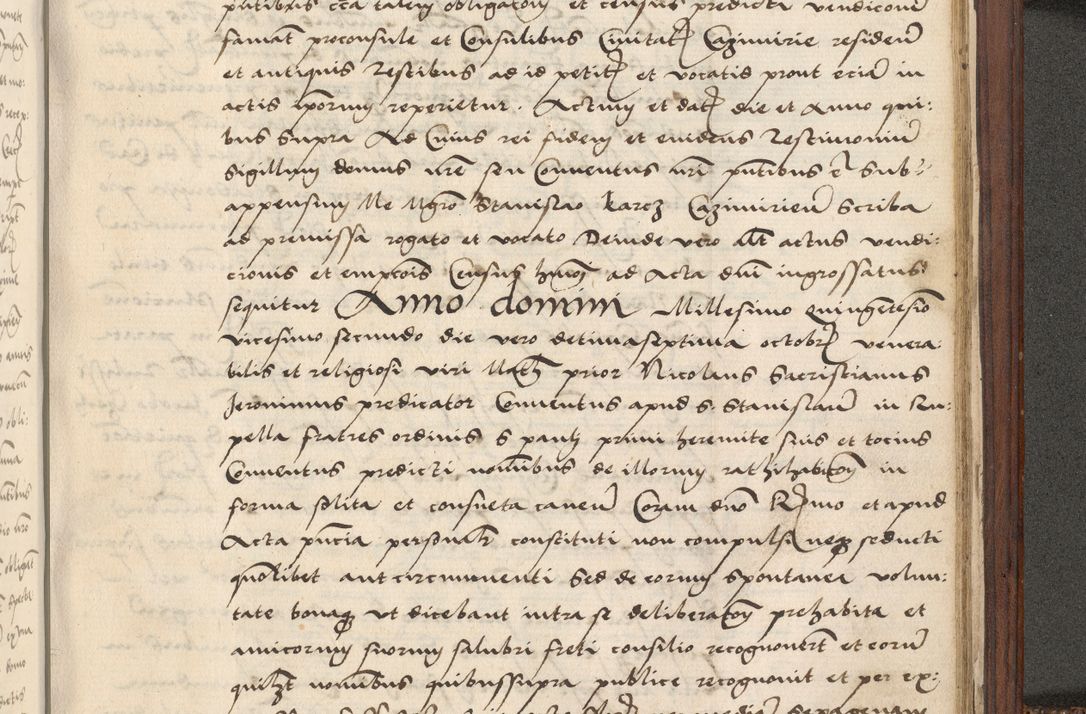 famat proconsule et Consulibus Civitat Cazimirie residen
et antiquis Testibus ad id petit et vocatis prout ecia in
actis ipõrum reperietur. Actum et dat die et Anno qui:
bus supra Ad Cuius rei fidem et evidens Testimoniu
Sigillum domus nrẽ seu Conventus nrĩ pñtibus ẽ Sub:
appensum Me Mgrõ Stanislao Karcz Cazimirien Scriba
ad premissa rogato et vocato Deinde vero alt actus vendi:
cionis et empcõis Census hmõi ad Acta dnĩ ingrossatus
sequitur Anno domini Millesimo quingentesio
vicesimo secundo die vero decimaseptima octobr venera:
bilis et religiosi viri Math prior Nicolaus Sacristianus
Jeronimus predicator Conventus apud S. Stanislau in Ru:
pella fratres ordinis S pauli primi heremite suis et tocius
Conventus predicti noĩbus de illorum rathihabitõn in
forma solita et consueta caven Coram dnõ Rmo et apud
Acta pñcia personalr constituti non compulsi neq seducti
quõlibet aut circumventi Sed de eorum spontanea volun:
tate bonaq ut dicebant intra se deliberatõn prehabita et
amicorum suorum salubri freti consilio recognovert et eoru
quilzt noĩbus quibussupra publice recognovit et per ex: